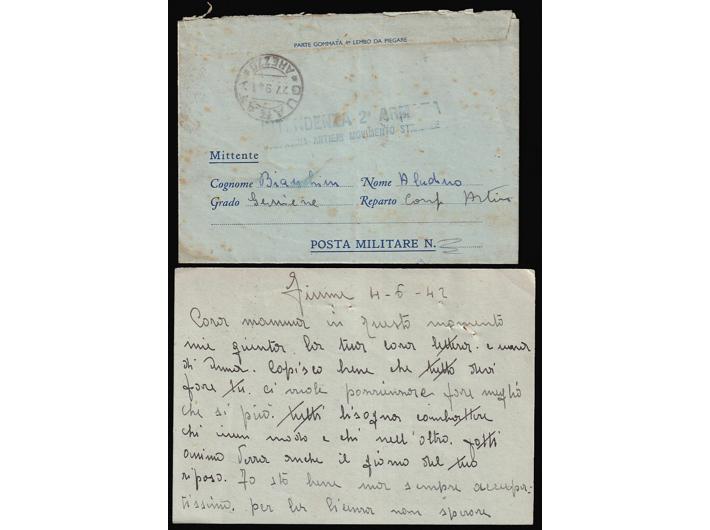 PARTE GOMMATA 4° LEMBO DA PIEGARE
GUARAT
AREZZO
27.9.41
INTENDENZA 2ª ARMATA
ARTIERI MOVIMENTO
Mittente
Cognome Nome
Grado Reparto Comp
POSTA MILITARE N.
Fiume 4-6-42
Cara mamma in questo momento
mie giunta la tua cara lettera. e
di Anna. Capisco bene che tutto devi
fare tu. ci vuole fare meglio
che si può. tutti bisogna combattere
chi inun modo e chi nell'altro. fatti
animo verrà anche il giorno del tuo
riposo. Io stò bene ma sempre accupa-
tissimo. per la licenza non sperare